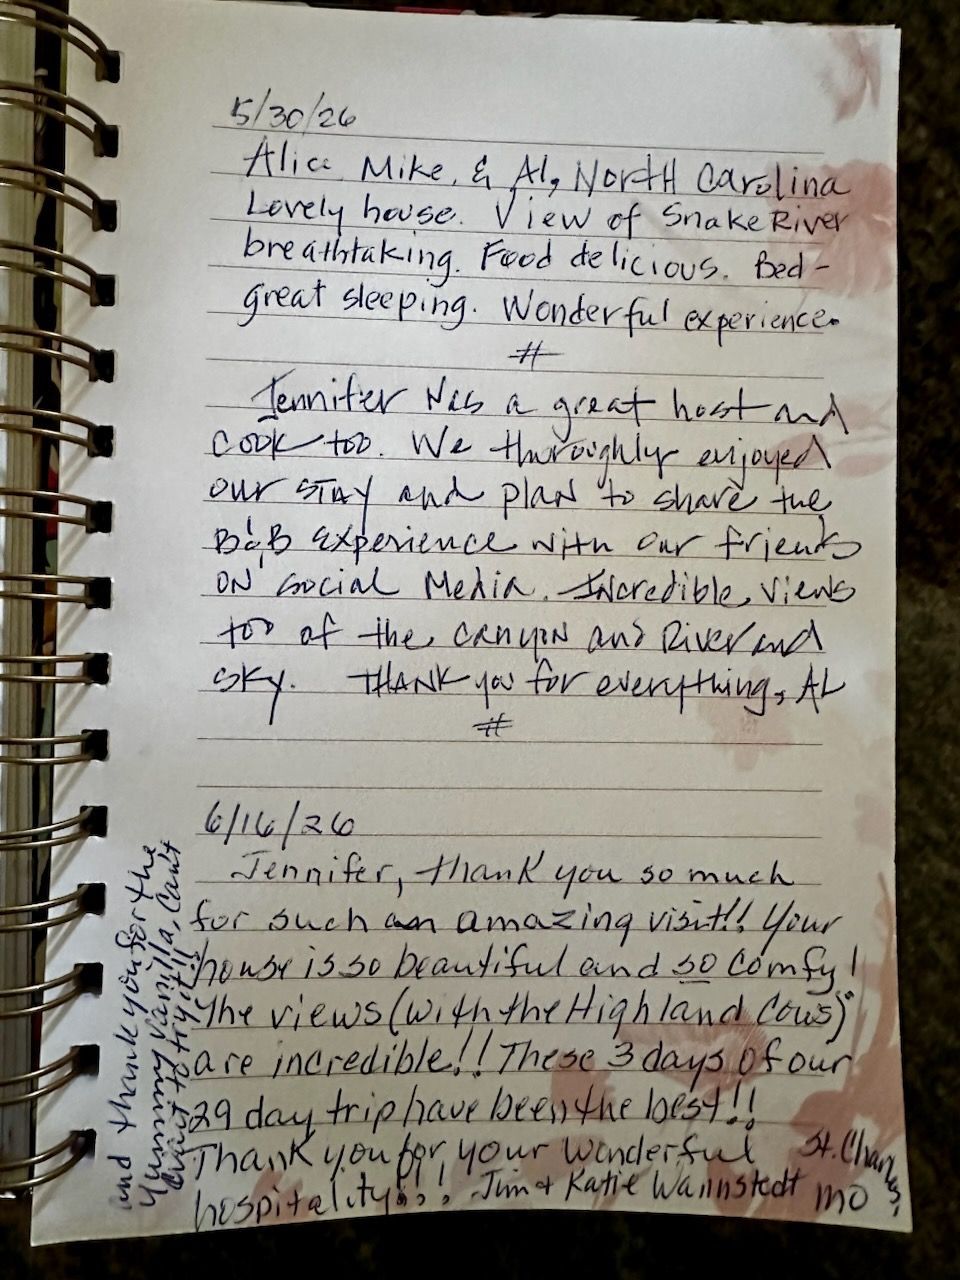 5/30/26
Alice, Mike, & Al, North Carolina
Lovely house. View of Snake River
breathtaking. Food delicious. Bed-
great sleeping. Wonderful experience.
#
Jennifer was a great host and
cook too. We thoroughly enjoyed
our stay and plan to share the
B&B experience with our friends
on social media. Incredible views
too of the canyon and River and
sky. Thank you for everything, AL
#
6/16/26
Jennifer, thank you so much
for such an amazing visit!! Your
house is so beautiful and so comfy!
The views (with the Highland Cows)
are incredible!! These 3 days of our
29 day trip have been the best!!
Thank you for your wonderful
hospitality!!! -Jim & Katie Wannstedt
St. Charles,
MO
and thank you for the
Yummy Vanilla, Can't
wait to try it!!